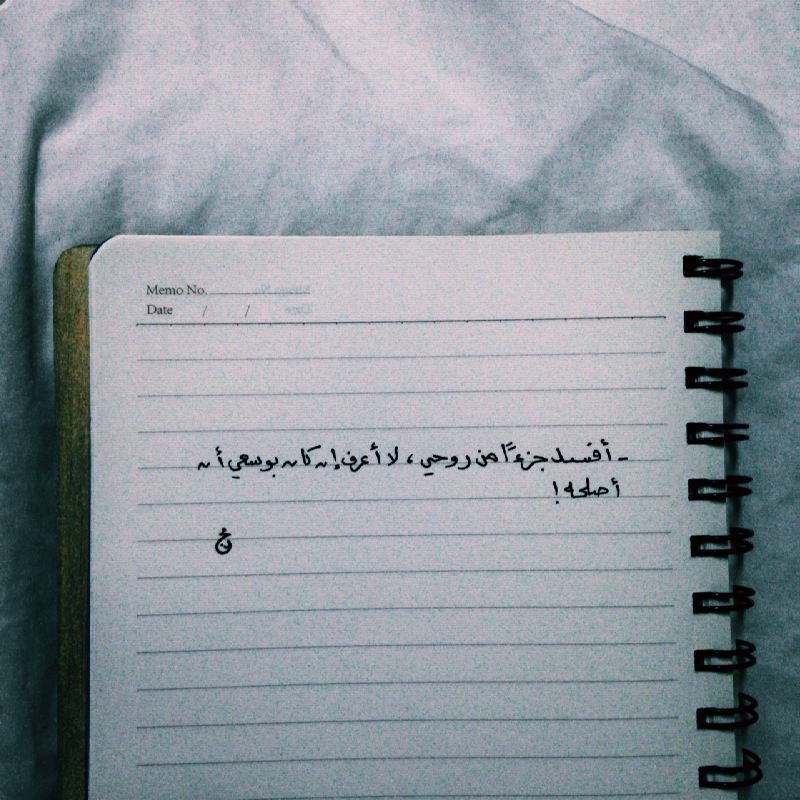 Memo No.
Date / /
- أفسد جزءًا من روحي ، لا أعرف إن كان بوسعي أن
أصلحه !